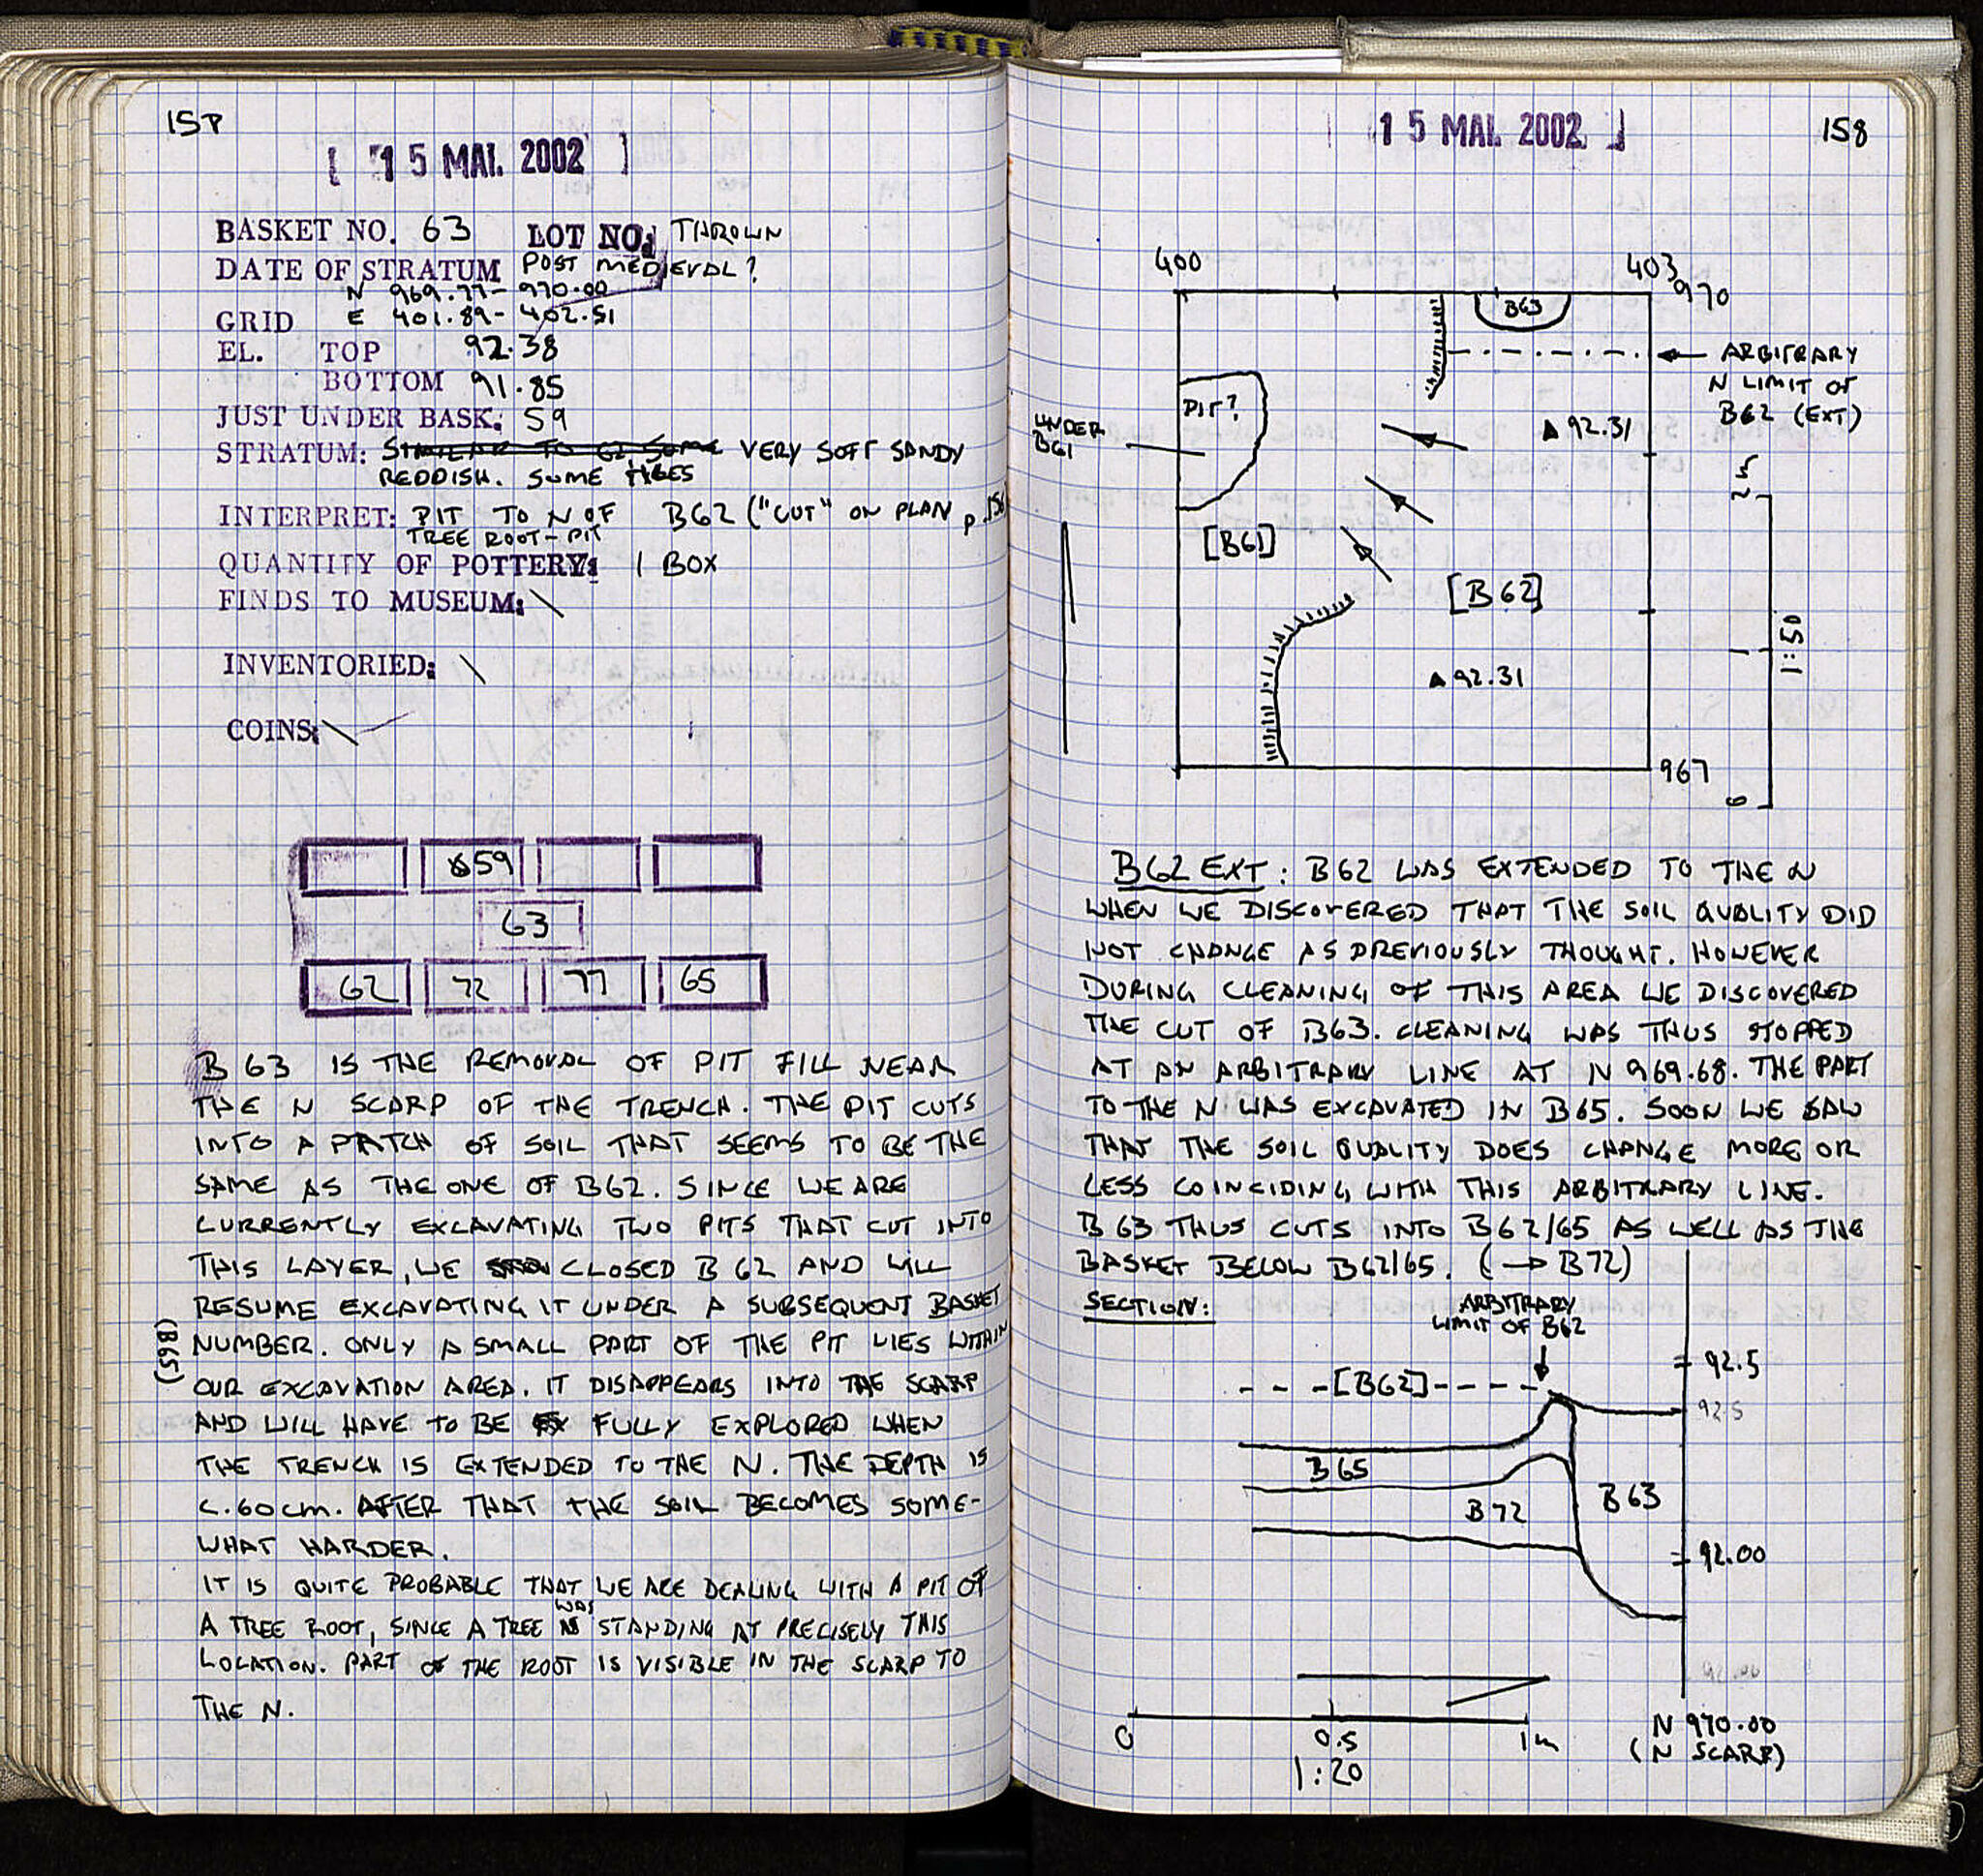 157
[ 15 MAI. 2002 ]
BASKET NO. 63 LOT NO: THROWN
DATE OF STRATUM POST MEDIEVAL?
N 969.77-970.00
GRID E 401.89-402.51
EL. TOP 92.38
BOTTOM 91.85
JUST UNDER BASK: 59
STRATUM: SIMILAR TO 62, SOME VERY SOFT SANDY
REDDISH. SOME TILES
INTERPRET: PIT TO N OF B62 ("CUT" ON PLAN p.156
TREE ROOT-PIT
QUANTITY OF POTTERY: 1 BOX
FINDS TO MUSEUM: \
INVENTORIED: \
COINS: \
59
63
62 72 77 65
B 63 IS THE REMOVAL OF PIT FILL NEAR
THE N SCARP OF THE TRENCH. THE PIT CUTS
INTO A PATCH OF SOIL THAT SEEMS TO BE THE
SAME AS THE ONE OF B62. SINCE WE ARE
CURRENTLY EXCAVATING TWO PITS THAT CUT INTO
THIS LAYER, WE CLOSED B 62 AND WILL
RESUME EXCAVATING IT UNDER A SUBSEQUENT BASKET
(B65)
NUMBER. ONLY A SMALL PART OF THE PIT LIES WITHIN
OUR EXCAVATION AREA. IT DISAPPEARS INTO THE SCARP
AND WILL HAVE TO BE FULLY EXPLORED WHEN
THE TRENCH IS EXTENDED TO THE N. THE DEPTH IS
C. 60 cm. AFTER THAT THE SOIL BECOMES SOME-
WHAT HARDER.
IT IS QUITE PROBABLE THAT WE ARE DEALING WITH A PIT OF
A TREE ROOT, SINCE A TREE WAS STANDING AT PRECISELY THIS
LOCATION. PART OF THE ROOT IS VISIBLE IN THE SCARP TO
THE N.
15 MAI. 2002 ]
158
400
403
970
B63
ARBITRARY
N LIMIT OF
B62 (EXT)
PIT?
UNDER
B61
▲ 92.31
[B61]
[B62]
▲ 92.31
967
1:50
0
B62 EXT: B62 WAS EXTENDED TO THE N
WHEN WE DISCOVERED THAT THE SOIL QUALITY DID
NOT CHANGE AS PREVIOUSLY THOUGHT. HOWEVER
DURING CLEANING OF THIS AREA WE DISCOVERED
THE CUT OF B63. CLEANING WAS THUS STOPPED
AT AN ARBITRARY LINE AT N 969.68. THE PART
TO THE N WAS EXCAVATED IN B65. SOON WE SAW
THAT THE SOIL QUALITY DOES CHANGE MORE OR
LESS COINCIDING WITH THIS ARBITRARY LINE.
B 63 THUS CUTS INTO B62/65 AS WELL AS THE
BASKET BELOW B62/65. (→ B72)
SECTION:
ARBITRARY
LIMIT OF B62
92.5
[B62]
92.5
B 65
B 72
B 63
92.00
92.00
0 0.5 1m
1:20
N 970.00
(N SCARP)